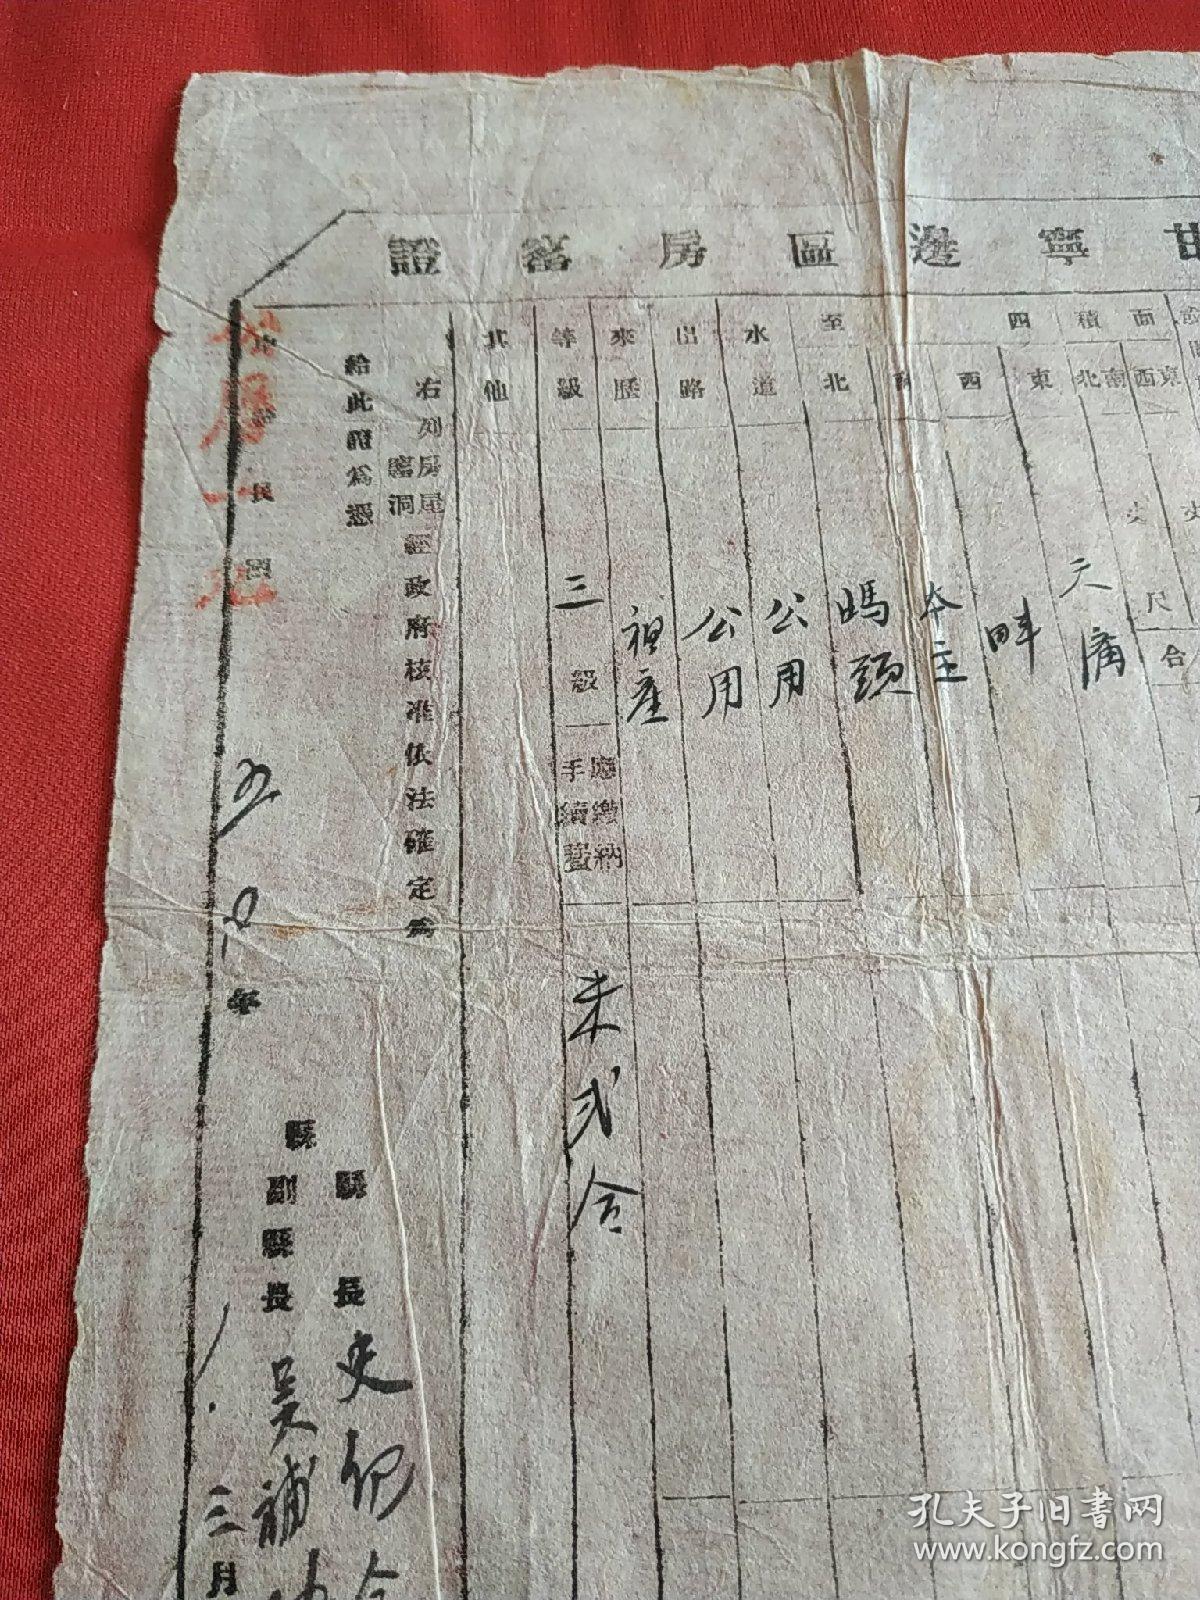 甘寧邊區房窰證
面積
東西
南北
丈
尺
合
四至
東
天廣
西
畔
南
本主
北
塄頭
水道
公用
出路
公用
來歷
祖産
等級
三級
應繳納手續費
米弍合
其他
右列房屋窰洞經政府核准依法確定爲
給此證爲憑
縣長 史
縣副縣長 吳補
中華民國
公曆一九五〇年
三月
孔夫子旧书网
www.kongfz.com